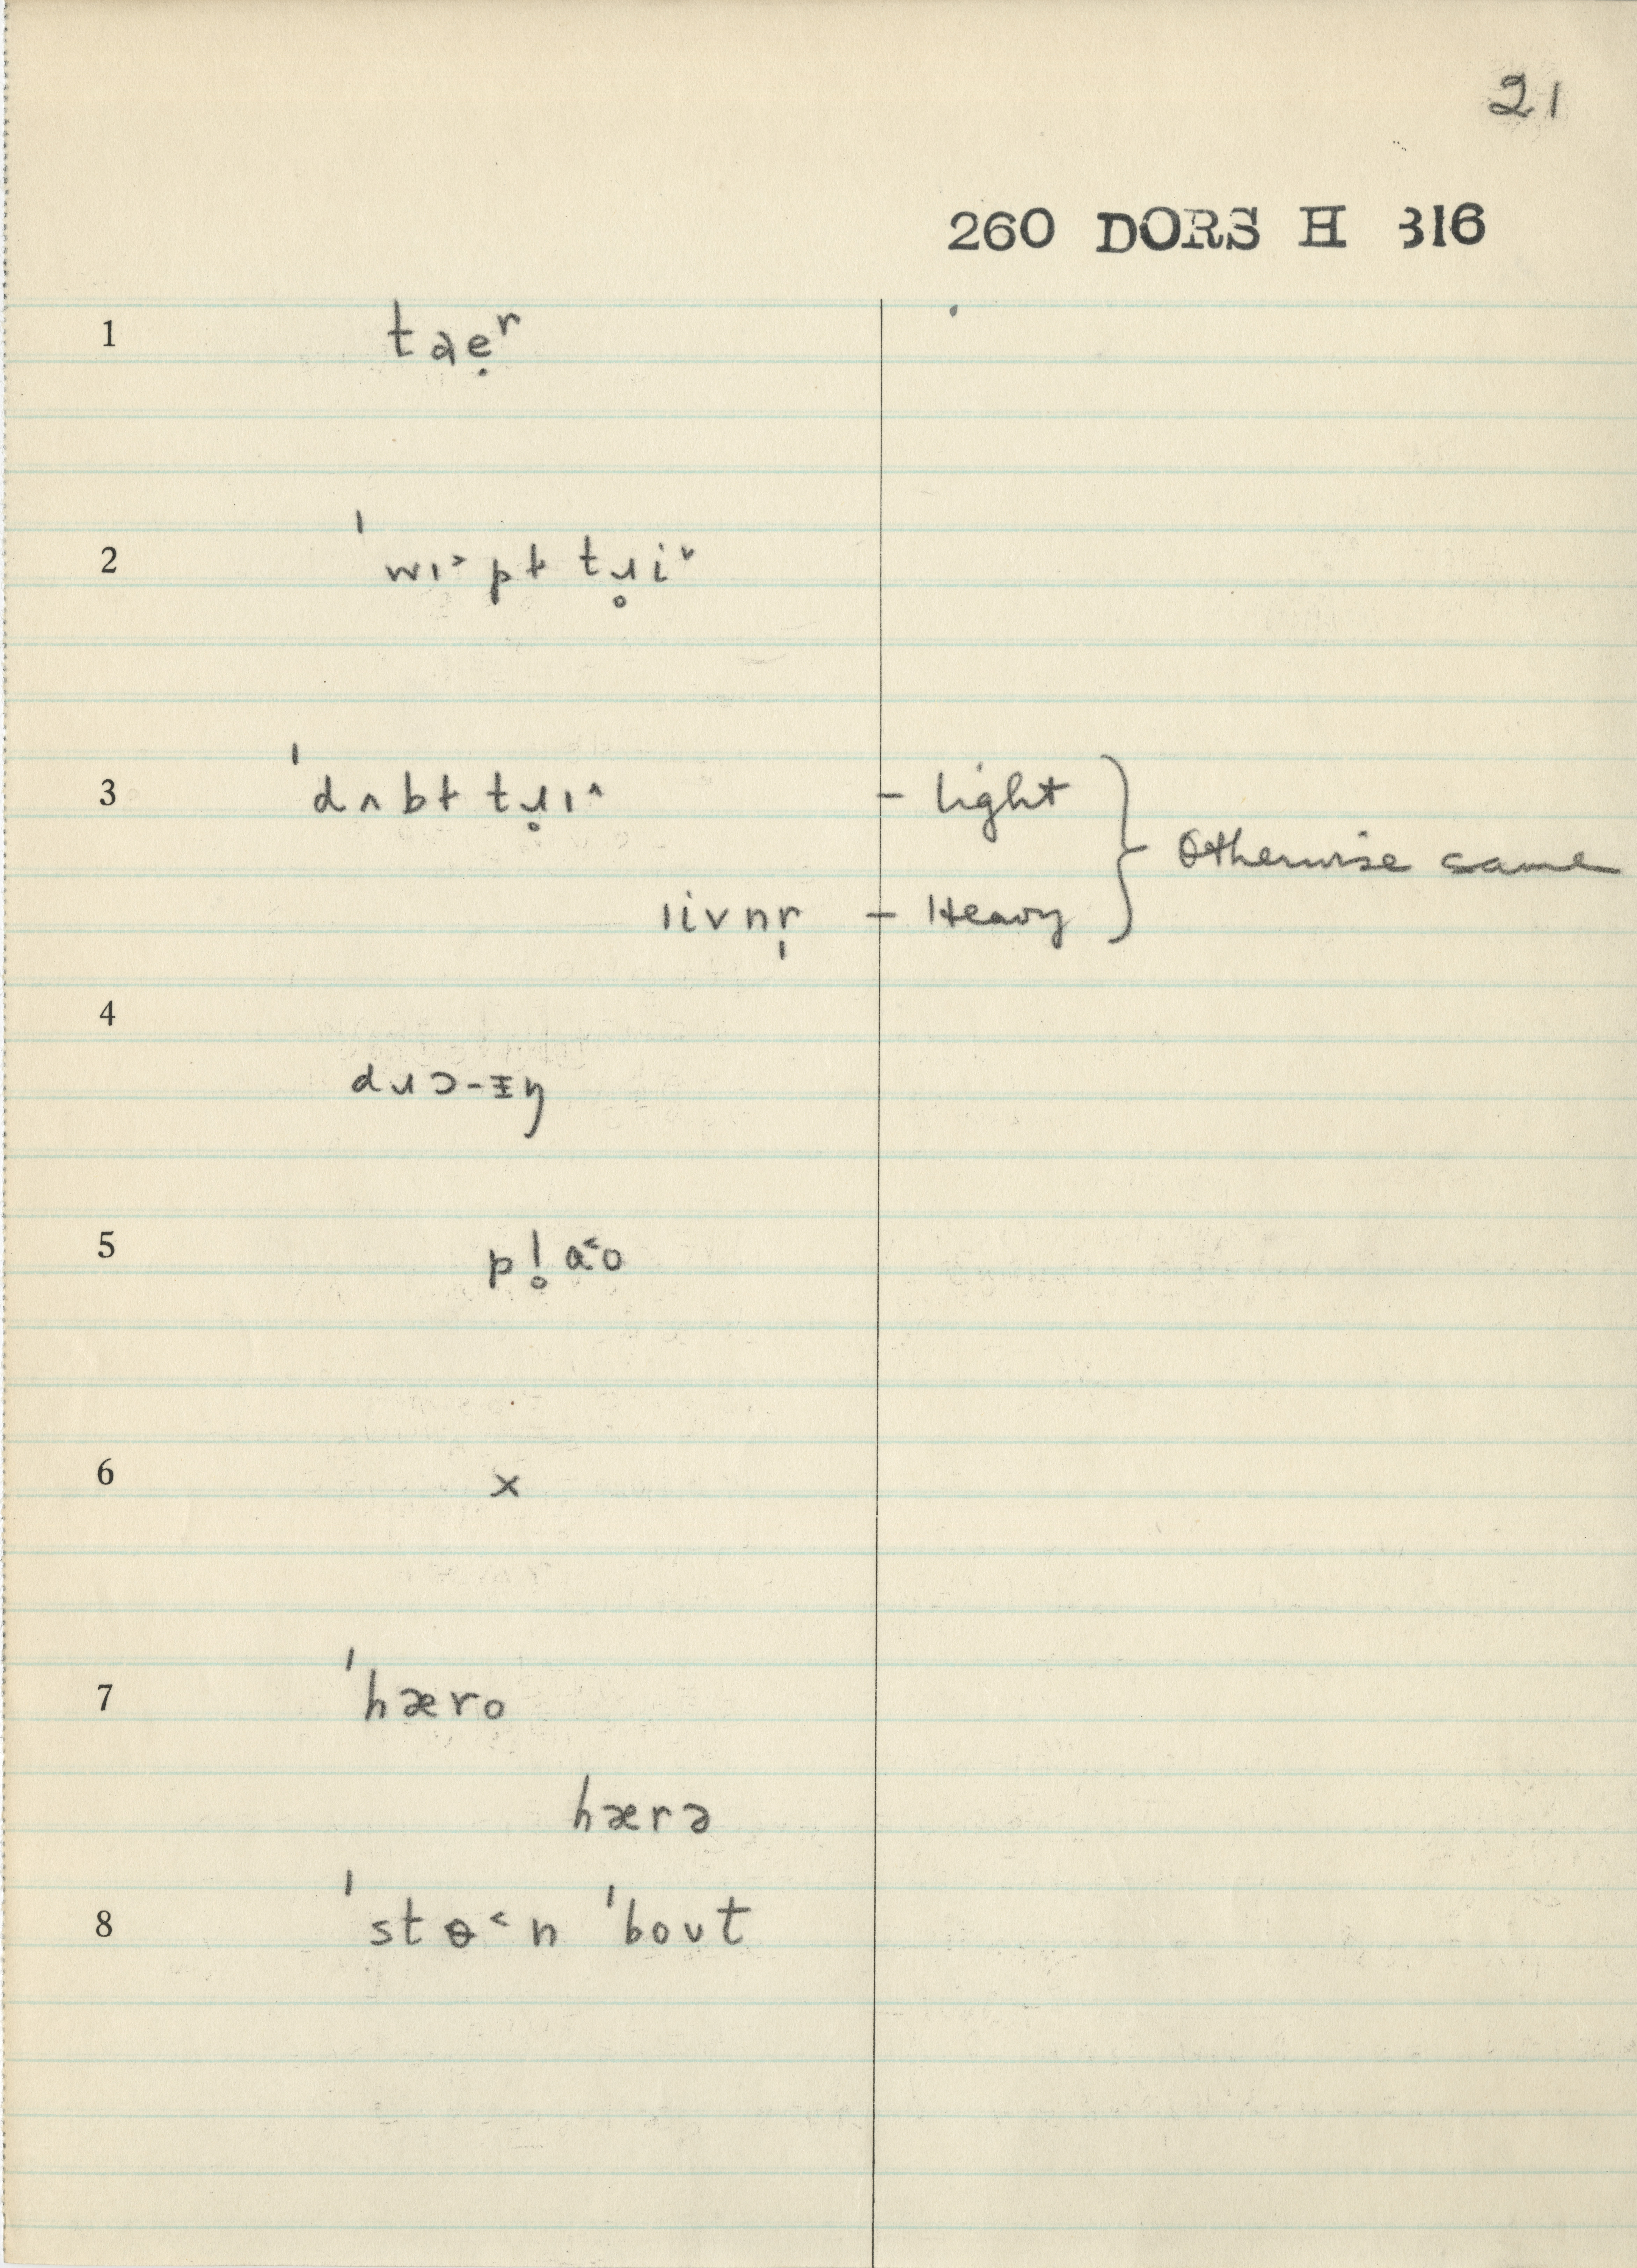 21
260 DORS H 316
1 taẹʳ
2 ˈwɪ˃pɫ tɹ̥i˅
3 ˈdʌbɫ tɹ̥ɪ˄ – light
Otherwise same
livnr̩ – Heavy
4
dɹɔ-ɪŋ
5 pl̥a˂o
6 x
7 ˈhæro
hærə
8 ˈstɵ˂n ˈbout